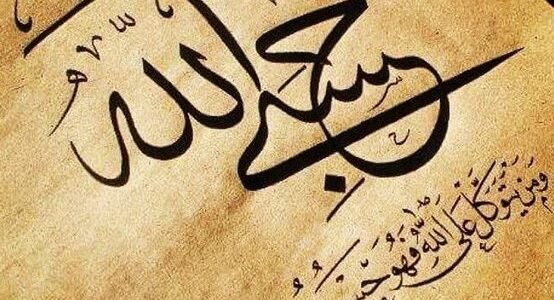 حسبي الله
وَمَن يَتَوَكَّلْ عَلَى اللَّهِ فَهُوَ